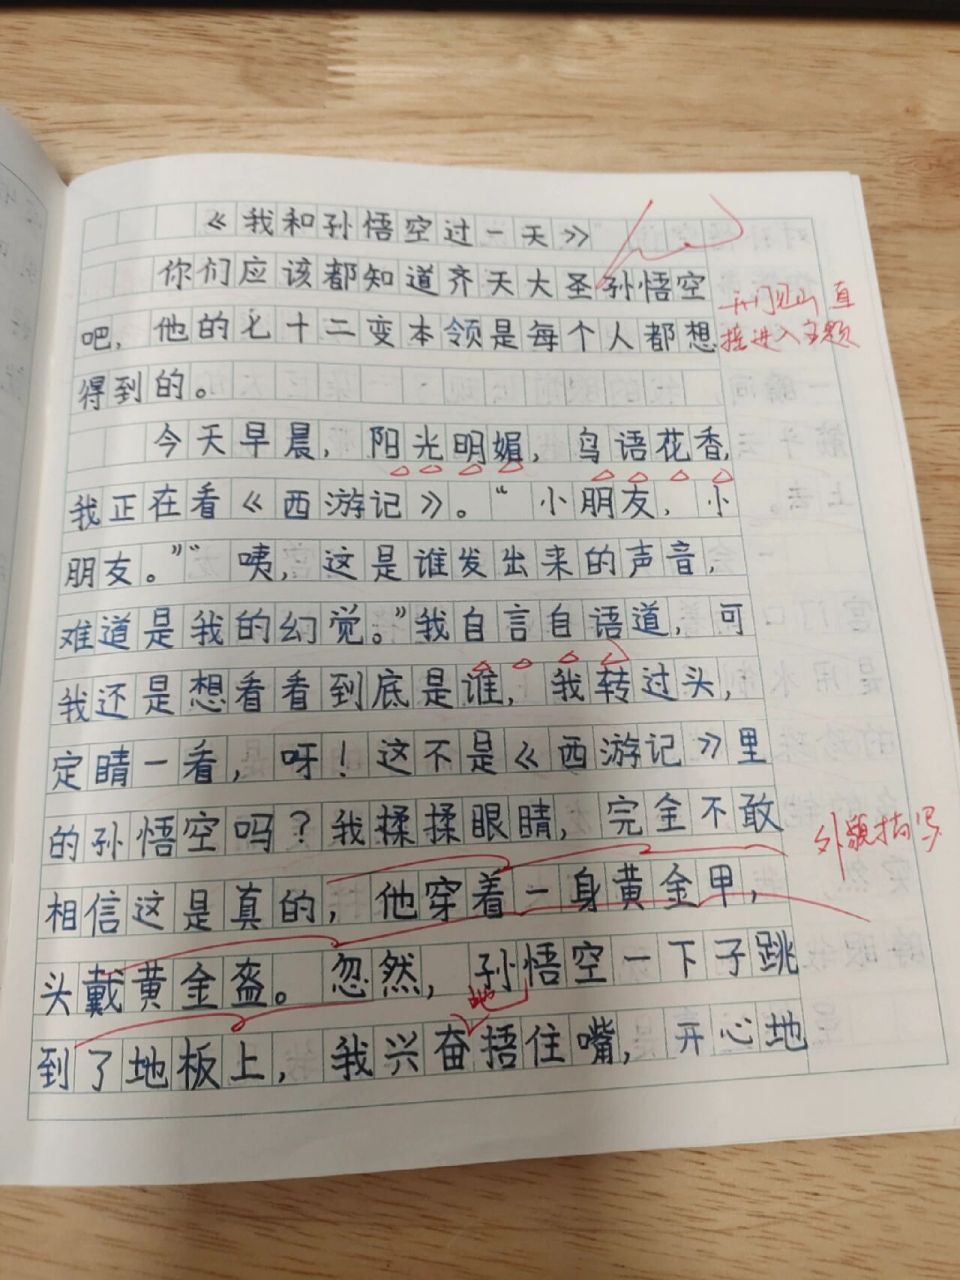 《我和孙悟空过一天》
你们应该都知道齐天大圣孙悟空
吧，他的七十二变本领是每个人都想
得到的。
开门见山 直
接进入主题
今天早晨，阳光明媚，鸟语花香，
我正在看《西游记》。“小朋友，小
朋友。”“咦，这是谁发出来的声音，
难道是我的幻觉。”我自言自语道，可
我还是想看看到底是谁，我转过头，
定睛一看，呀！这不是《西游记》里
的孙悟空吗？我揉揉眼睛，完全不敢
外貌描写
相信这是真的，他穿着一身黄金甲，
头戴黄金盔。忽然，孙悟空一下子跳
地
到了地板上，我兴奋捂住嘴，开心地